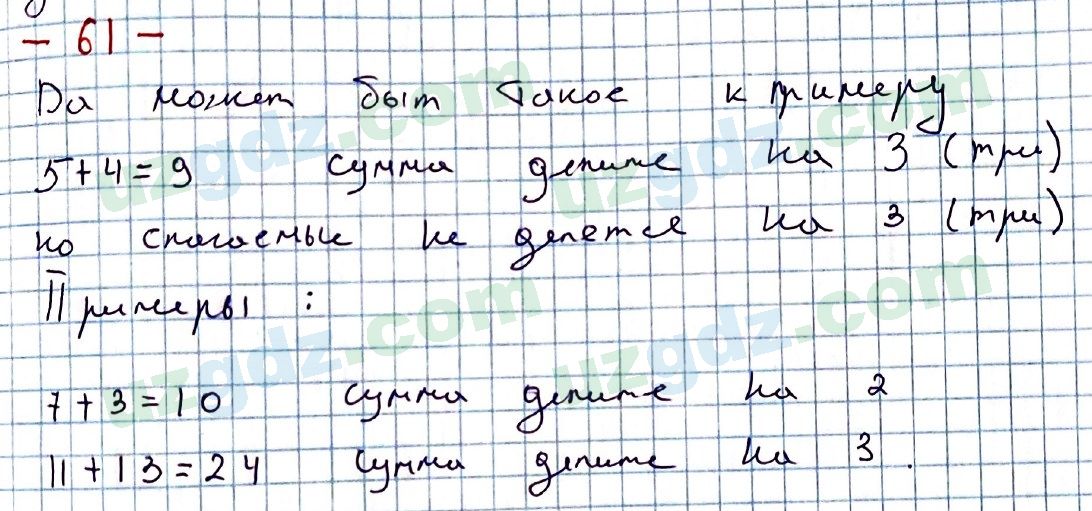 - 61 -
Да может быт такое к примеру
5+4=9 сумма делите на 3 (три)
но слагаемые не делется на 3 (три)
Примеры :
7+3=10 сумма делите на 2
11+13=24 сумма делите на 3.
uzgdz.com uzgdz.com
uzgdz.com uzgdz.com